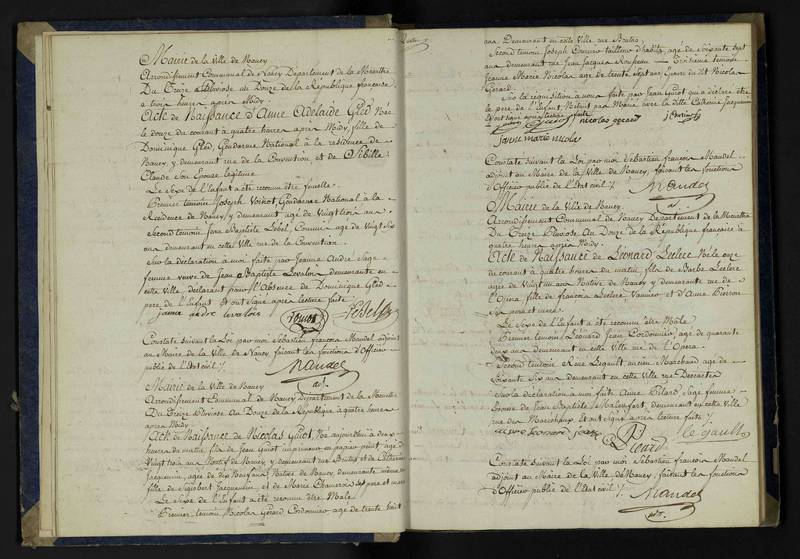 Mairie de la Ville de Nancy
Arrondissement Communal de Nancy Département de la Meurthe
Du Treize Pluviose an Douze de la République française
a trois heures apres Midy
Acte de Naissance d'Anne Adelaide Gled Née
le douze du courant a quatre heures apres Midy, fille de
Dominique Gled, Gendarme National à la residence de
Nancy, y demeurant rue de la Convention, et de Sibille
Claude Son Epouse legitime
Le Sexe de l'Enfant a été reconnu être femelle.
Premier temoin Joseph Voinot, Gendarme National à la
Residence de Nancy, y demeurant agé de Vingt trois ans
Second temoin Jean Baptiste Lebel, Commis agé de Vingt Six
ans demeurant en cette Ville rue de la Convention
Sur la déclaration à moi faite par Jeanne André Sage
femme veuve de Jean Baptiste Levalois demeurante en
cette Ville déclarant pour l'absence de Dominique Gled
pere de l'Enfant Et ont Signé après lecture faite
Constaté suivant la Loi par moi Sébastien françois Mandel adjoint
au Maire de la Ville de Nancy faisant les fonctions d'Officier
public de l'Etat civil
Mandel
adj.
Mairie de la Ville de Nancy
Arrondissement Communal de Nancy Département de la Meurthe
Du Treize Pluviose An Douze de la République à quatre heures
apres Midy
Acte de Naissance de Nicolas Guiot, Né aujourd'hui à dix
heures du matin fils de Jean Guiot imprimeur en papier peint agé de
Vingt trois ans Natif de Nancy, y demeurant rue Brutus et de Catherine
Jacquemin, agée de Natíve de Nancy, demeurante même rue
fille de Jacquemin, et de Marie Ses pere et mere
Le Sexe de l'Enfant a été reconnu être Mâle
Premier temoin Nicolas Gerard Cordonnier agé de trente huit
ans Demeurant en cette Ville rue Brutus.
Second temoin Joseph tailleur d'habits, agé de Soixante Sept
ans demeurant rue Jean Jacques Rousseau Troisieme temoin
Jeanne Marie Nicolas agée de trente sept ans du dit Nicolas
Gerard.
Sur la réquisition à nous faite par Jean Guiot qui a déclaré être
le pere de l'Enfant, N'étant pas Marié avec la ditte Catherine Jacquemin
Et ont signé après lecture faite
nicolas gerard
janne marie nicolas
Constaté Suivant la Loi par moi Sébastien françois Mandel
adjoint au Maire de la Ville de Nancy, faisant les fonctions
d'Officier public de l'Etat civil
Mandel
adj.
Mairie de la Ville de Nancy
Arrondissement Communal de Nancy Departement de la Meurthe
Du Treize Pluviose An Douze de la République française à
quatre heures après Midy
Acte de Naissance de Léonard Leclerc Né le onze
du courant à quatre heures du matin, fils de Barbe Leclerc
agée de Vingt ans Native de Nancy y demeurante rue de
l'Opera, fille de françois Leclerc Vannier et d'Anne Pierron
Ses pere et mere.
Le Sexe de l'Enfant a été reconnu être Mâle
Premier temoin Léonard Jean Cordonnier, agé de quarante
ans demeurant en cette Ville rue de l'Opera.
Second temoin René Legault ancien Marchand agé de
Soixante Six ans demeurant en cette Ville rue Descartes
Sur la déclaration à moi faite Anne Pilard Sage femme
Epouse de Jean Baptiste Malenfort, demeurant en cette Ville
rue des Marechaux Et ont signé après lecture faite
le gault
Constaté Suivant la Loi par moi Sébastien françois Mandel
adjoint au Maire de la Ville de Nancy, faisant les fonctions
d'Officier public de l'Etat civil
Mandel
adj.